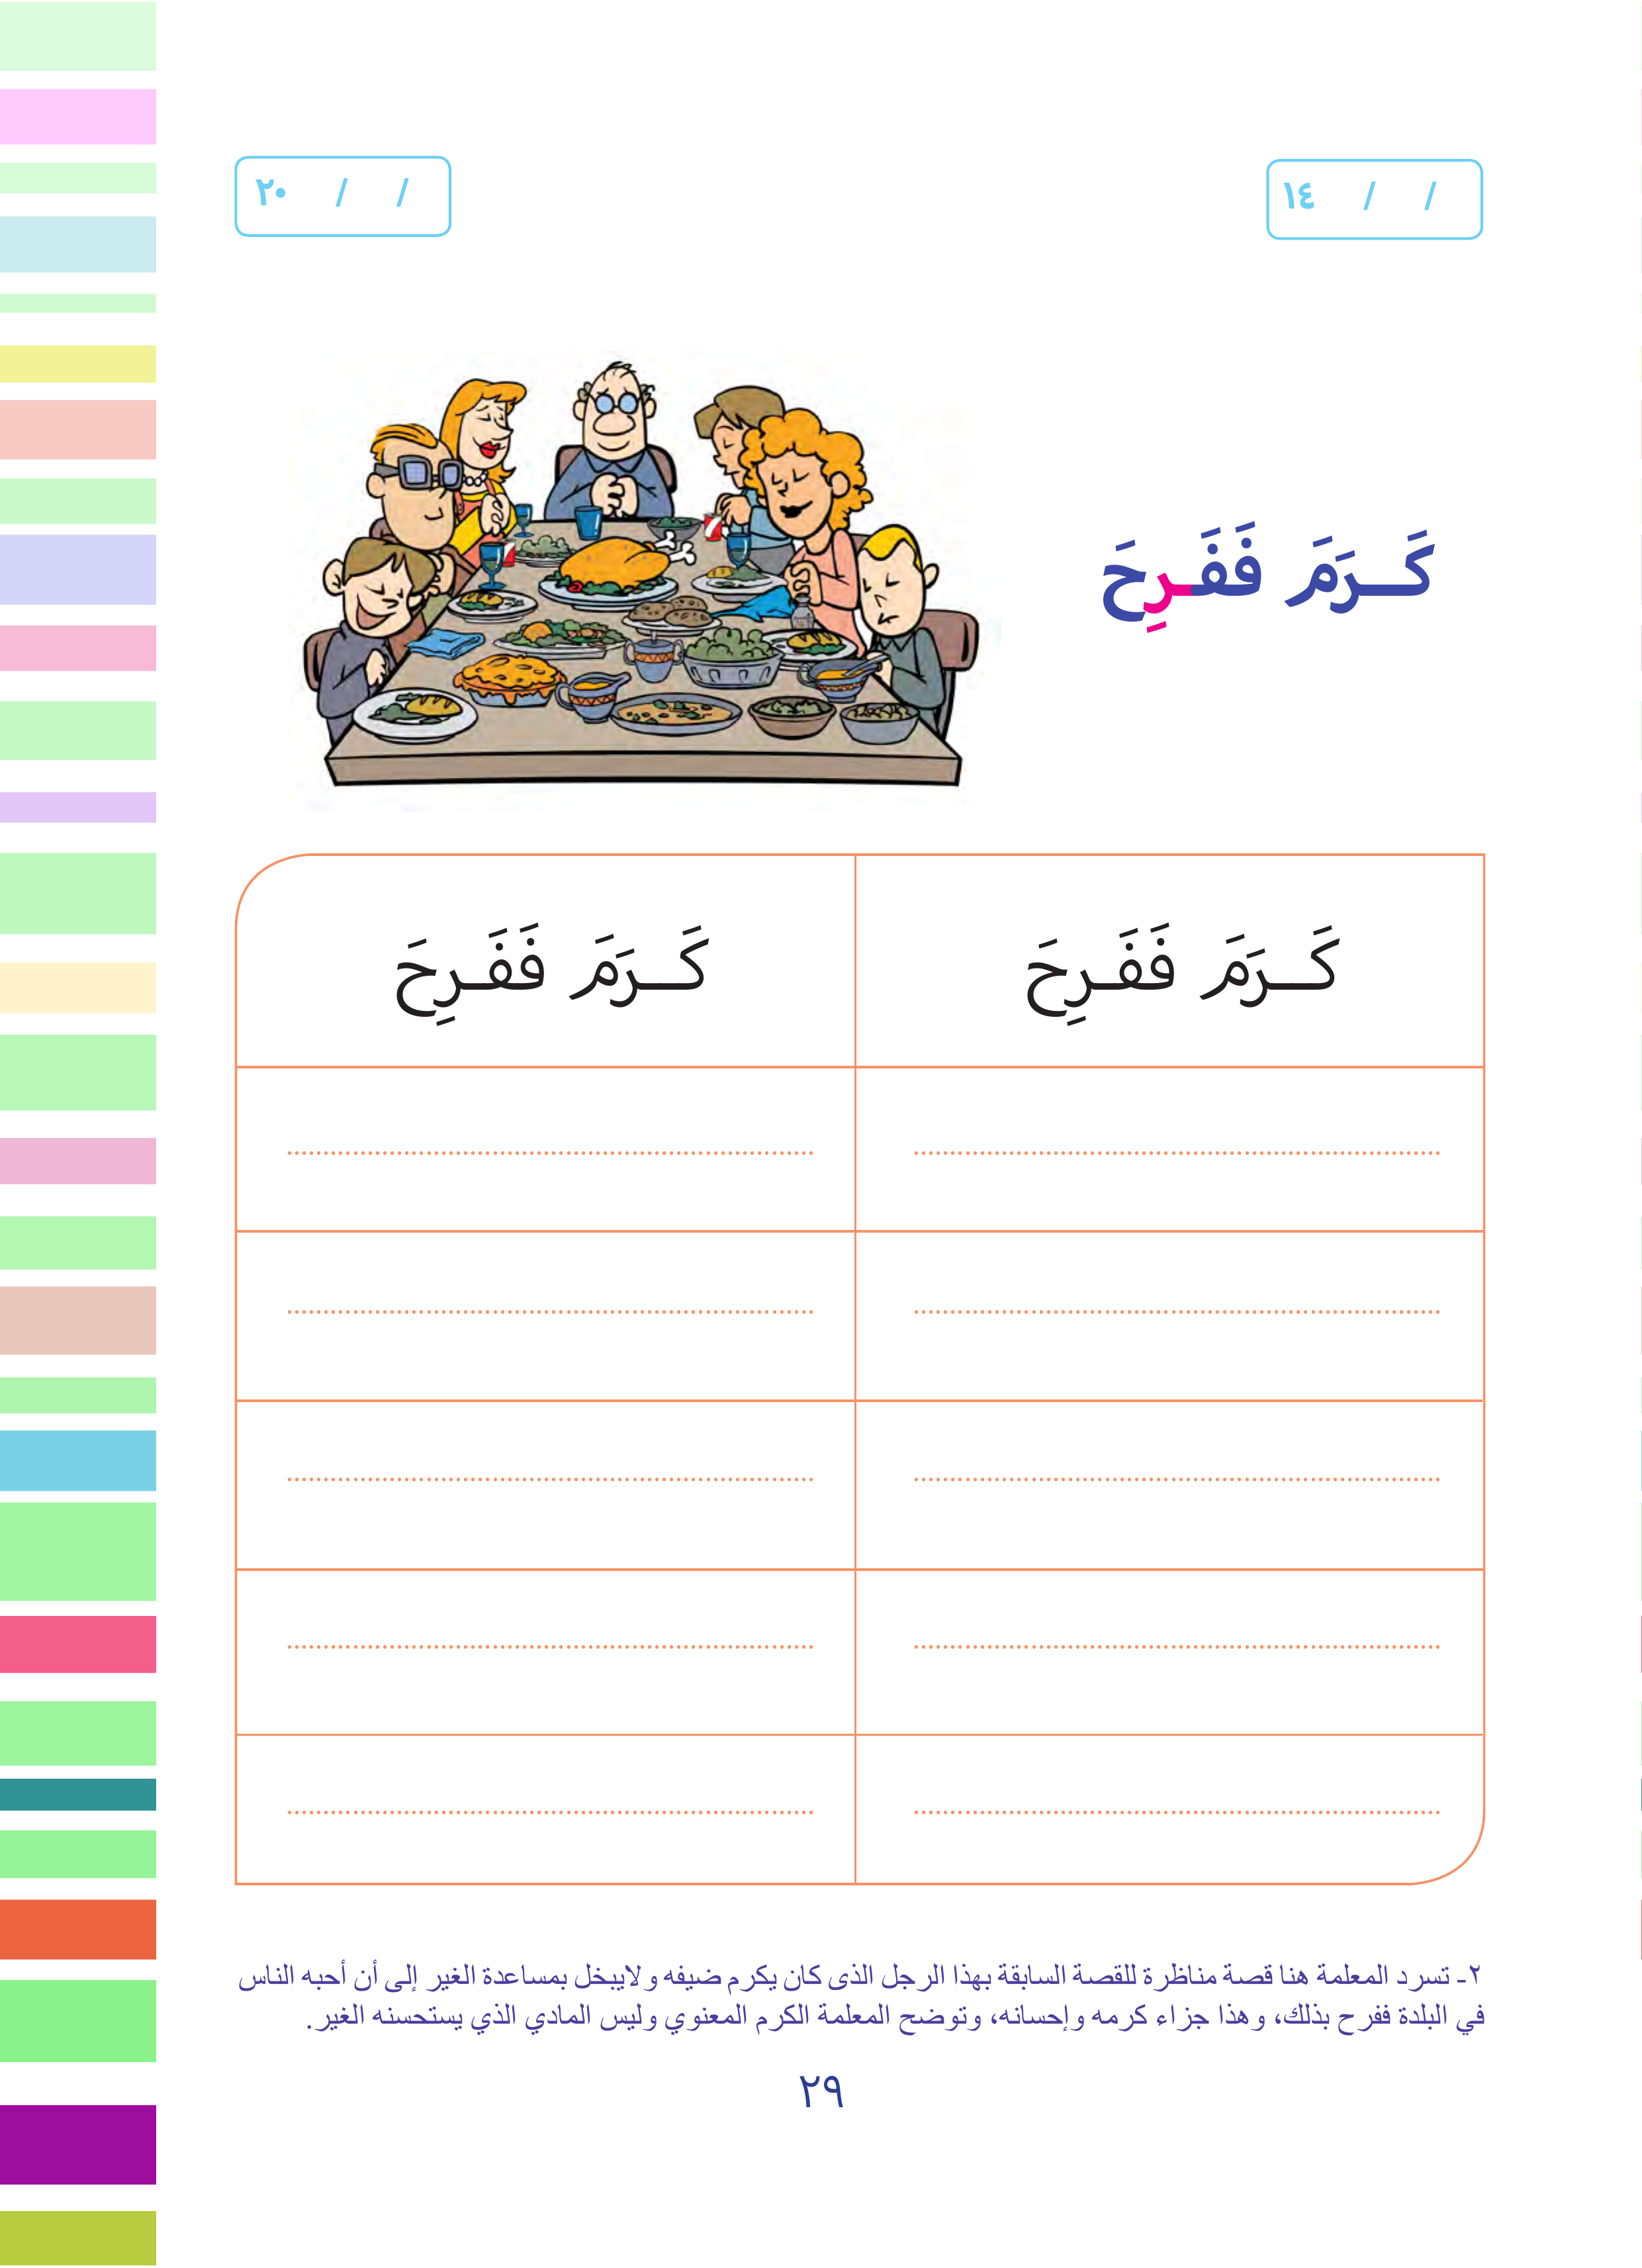 / / ١٤
/ / ٢٠
كَـرَمَ فَفَـرِحَ
كَـرَمَ فَفَـرِحَ
كَـرَمَ فَفَـرِحَ
٢- تسرد المعلمة هنا قصة مناظرة للقصة السابقة بهذا الرجل الذى كان يكرم ضيفه ولايبخل بمساعدة الغير إلى أن أحبه الناس
في البلدة ففرح بذلك، وهذا جزاء كرمه وإحسانه، وتوضح المعلمة الكرم المعنوي وليس المادي الذي يستحسنه الغير.
٢٩